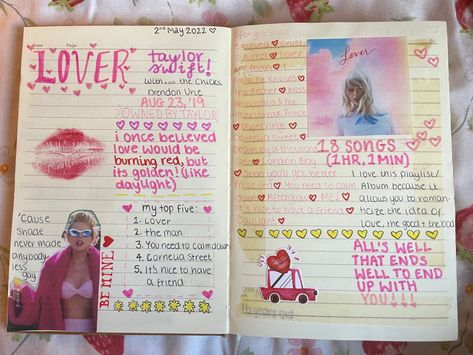 2nd May 2022
Date
Page
LOVER
taylor
swift!
with... the Chicks,
Brendon Urie
AUG 23, '19
OWNED BY TAYLOR!
i once believed
love would be
burning red, but
it's golden! (like
daylight)
'Cause
Shade
never made
anybody
less
gay
BE MINE
my top five:
1. Lover
2. the man
3. You need to calm down
4. Cornelia Street
5. It's nice to have
a friend
forgot that
Cruel
Summer Lover
The man
knows
Miss Americana &
Paper Rings
Cornelia Street
London Boy
Soon you'll get better
False God You need to calm
down Afterglow ME!
It's nice to have a friend
Daylight
Lover
18 SONGS
(1HR, 1MIN)
I love this playlist/
Album because it
allows you to roman-
ticize the idea of
Love, the good & the bad
ALL'S WELL
THAT ENDS
WELL TO END
UP WITH
YOU!!!